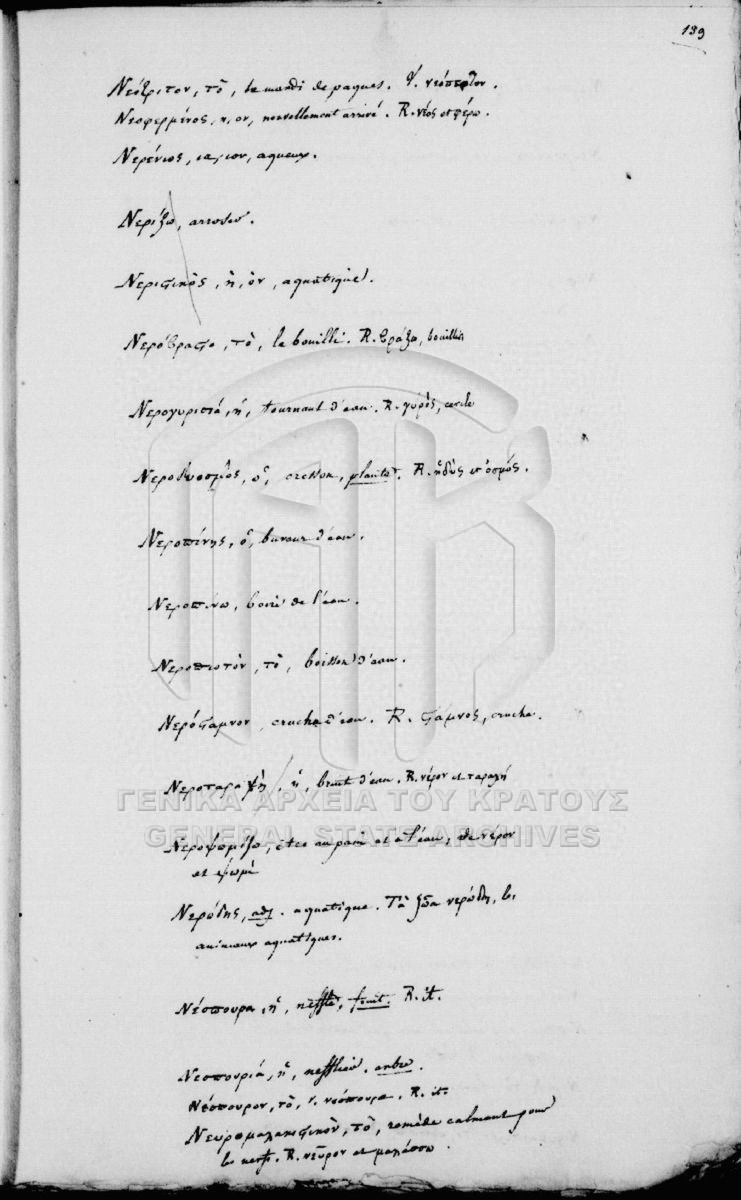 139
Νεόξριτον, τὸ, le mardi de paques. V. νεόπεφτον.
Νεοφερμένος, η, ον, nouvellement arrivé. R. νέος et φέρω.
Νερένιος, ια, ιον, aqueux.
Νερίζω, arroser.
Νεριστικὸς, ὴ, ὸν, aquatique.
Νερόβραστο, τὸ, le bouilli. R. βράζω, bouillir
Νερογυρισιά, ἡ, tournant d'eau. R. γυρὸς, cercle
Νεροδυοσμὸς, ὁ, cresson, plante. R. ἡδὺς et ὀσμός.
Νεροπίνης, ὁ, buveur d'eau.
Νεροπίνω, boire de l'eau.
Νεροπιοτὸν, τὸ, boisson d'eau.
Νερόσταμνον, cruche d'eau. R. στάμνος, cruche.
Νεροταραχὴ, ἡ, bruit d'eau. R. νέρον et ταραχή
Νεροψωμίζω, être au pain et à l'eau, de νέρον
et ψωμὶ
Νερώδης, adj. aquatique. Τὰ ζῶα νερώδη, les
animaux aquatiques.
Νέσπουρα, ἡ, neffle, fruit. R. it.
Νεσπουριά, ἡ, nefflier, arbre.
Νέσπουρον, τὸ, v. νεόπουρα. R. it.
Νευρομαλακτικὸν, τὸ, remède calmant pour
les nerfs. R. νεῦρον et μαλάσσω.
ΓΕΝΙΚΑ ΑΡΧΕΙΑ ΤΟΥ ΚΡΑΤΟΥΣ
GENERAL STATE ARCHIVES